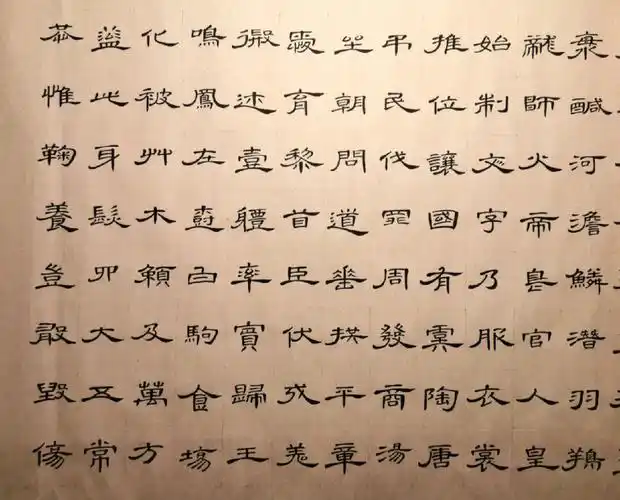 鹹河澹鱗潛羽
龍師火帝鳥官人皇
始制文字乃服衣裳
推位讓國有虞陶唐
弔民伐罪周發商湯
坐朝問道垂拱平章
愛育黎首臣伏戎羌
壹體率賓歸王
鳴鳳在尌白駒食場
化被艸木賴及萬方
蓋此身髮四大五常
恭惟鞠養豈敢毀傷